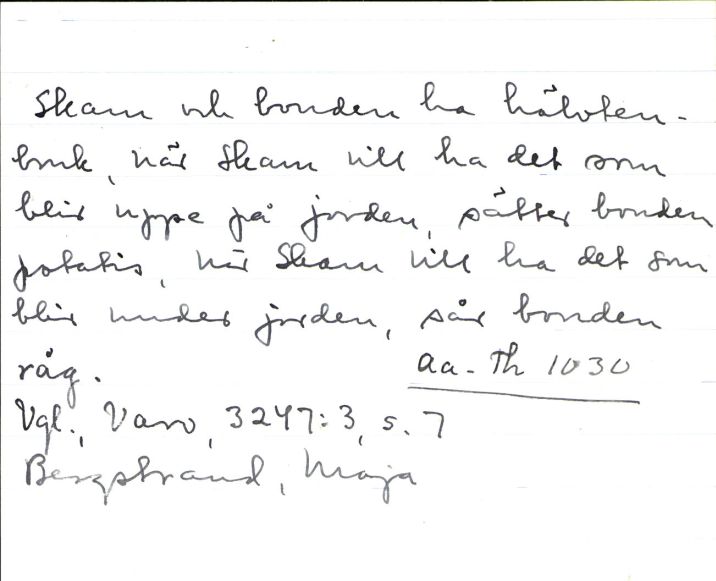 Skam och bonden ha hälvten-
bruk, när Skam vill ha det som
blir uppe på jorden, sätter bonden
potatis, när Skam vill ha det som
blir under jorden, sår bonden
råg.
Aa-Th 1030
Vgl., Varv, 3247:3, s. 7
Bergstrand, Maja